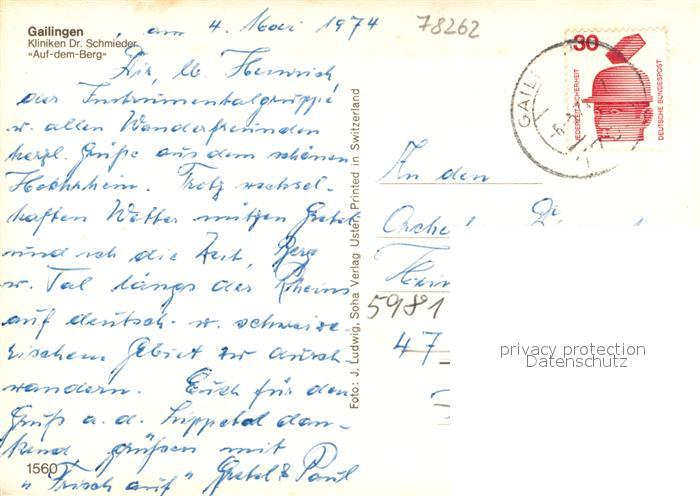 Gailingen
Kliniken Dr. Schmieder
«Auf-dem-Berg»
am 4. Mai 1974
78262
Dir, lb. Heinrich,
der Instrumentalgruppe
u. allen Wanderfreunden
herzl. Grüße aus dem schönen
Hochrhein. Trotz wechsel-
haften Wetter nützen Gretel
und ich die Zeit, Berg
u. Tal längs des Rheins
auf deutsch- u. schweize
rischem Gebiet zu durch-
wandern. Euch für den
Gruß a. d. Lippetal dan-
kend, grüßen mit
"Frisch auf" Gretel & Paul
1560
Foto: J. Ludwig, Soha Verlag Uster, Printed in Switzerland
GAILI
30
JEDERZEIT SICHERHEIT
DEUTSCHE BUNDESPOST
An den
Hein
5981
47
privacy protection
Datenschutz